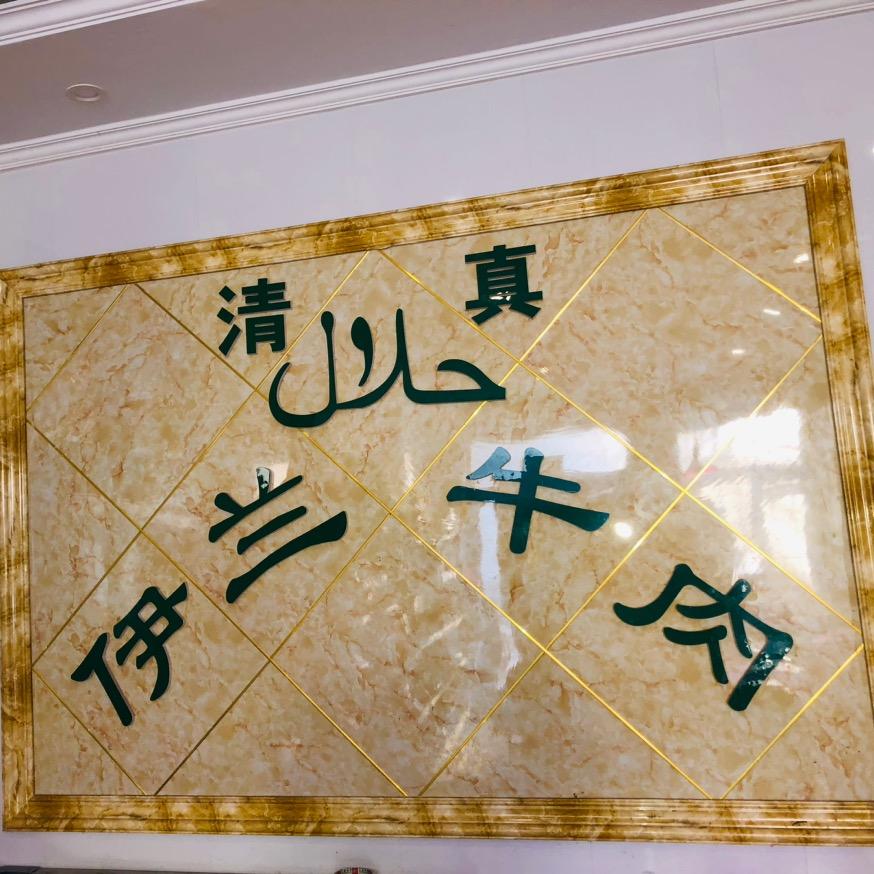 清真
حلال
伊兰牛肉